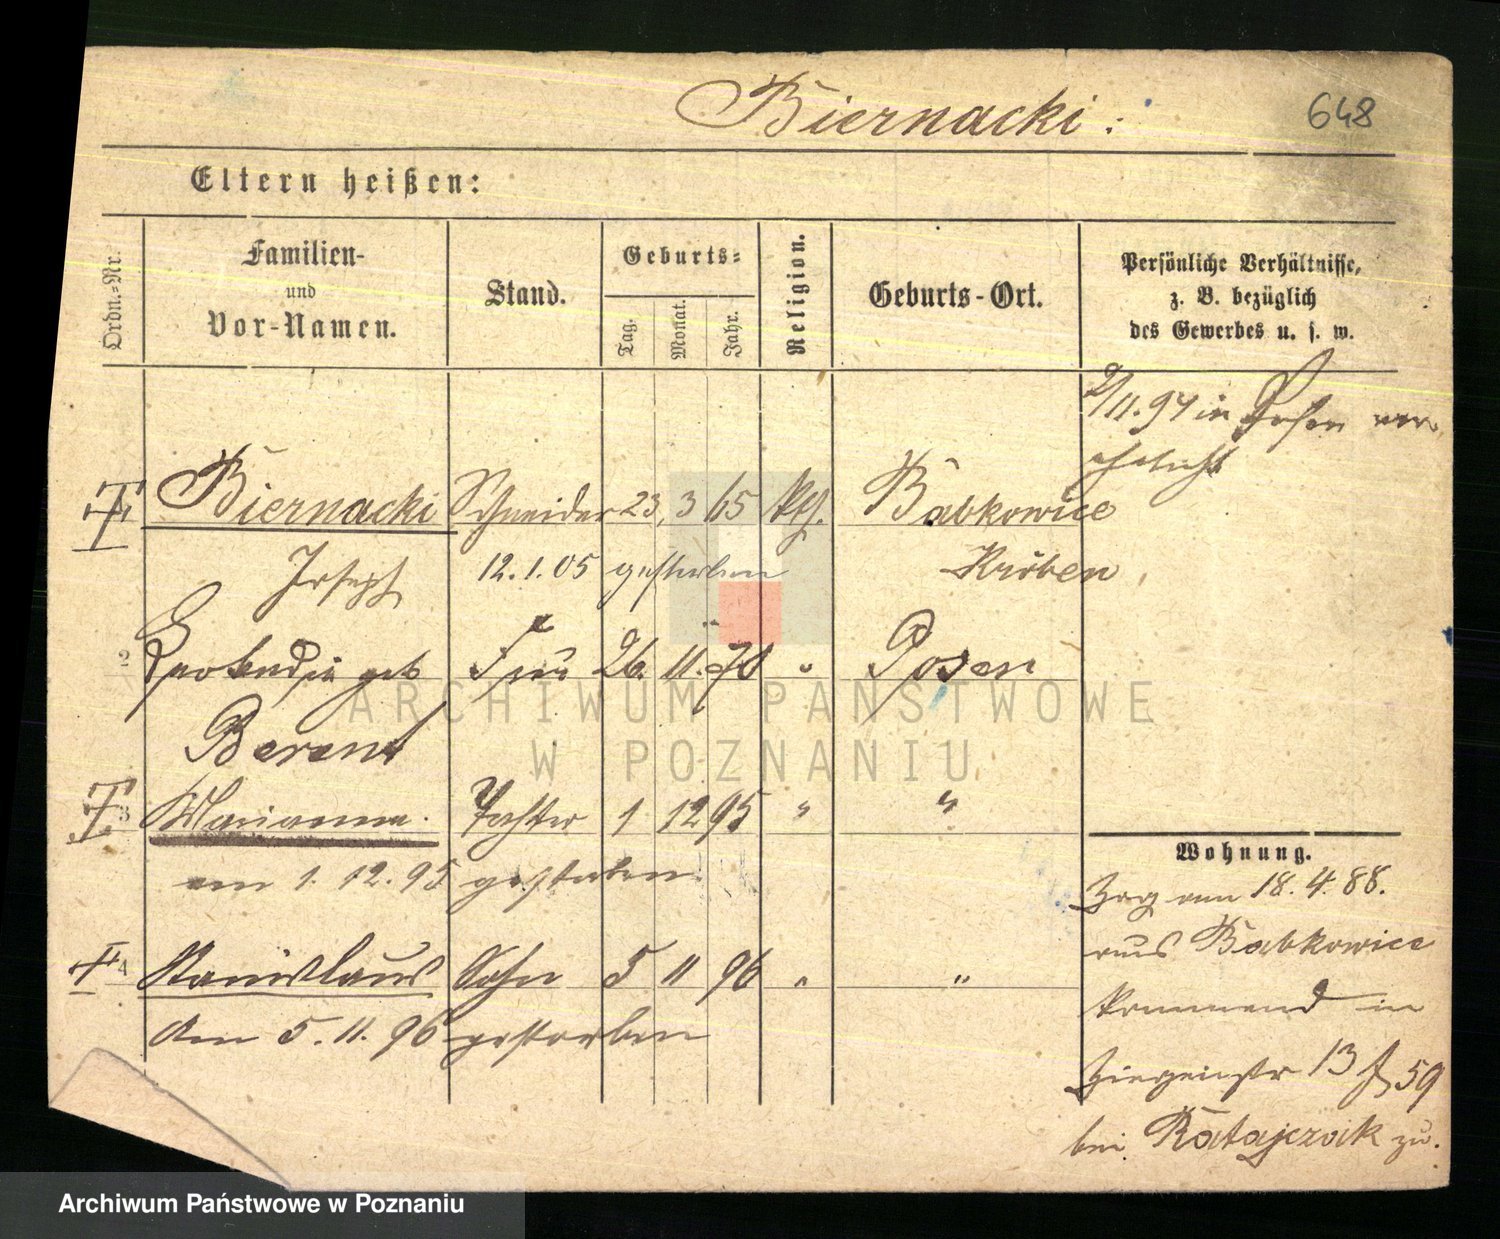 Biernacki:
648
Eltern heißen:
Ordn.-Nr.
Familien-
und
Vor-Namen.
Stand.
Geburts-
Tag.
Monat.
Jahr.
Religion.
Geburts-Ort.
Persönliche Verhältnisse,
z. B. bezüglich
des Gewerbes u. s. w.
9/11.94 in Posen ver
ehelicht
Biernacki Schneider 23. 3 65 kth. Babkowice
Joseph 12.1.05 gestorben Kröben
2 geb Frau 26. 11. 70 " Posen
Berent
3 Marianna. Tochter 1 12 95 " "
am 1. 12. 95 gestorben.
4 Stanislaus Sohn 5 11 96 " "
den 5. 11. 96 gestorben
Wohnung.
Zog am 18. 4. 88.
aus Babkowice
kommend in
Ziegenstr 13 59
bei Ratajczak zu.
ARCHIWUM PAŃSTWOWE
W POZNANIU
Archiwum Państwowe w Poznaniu